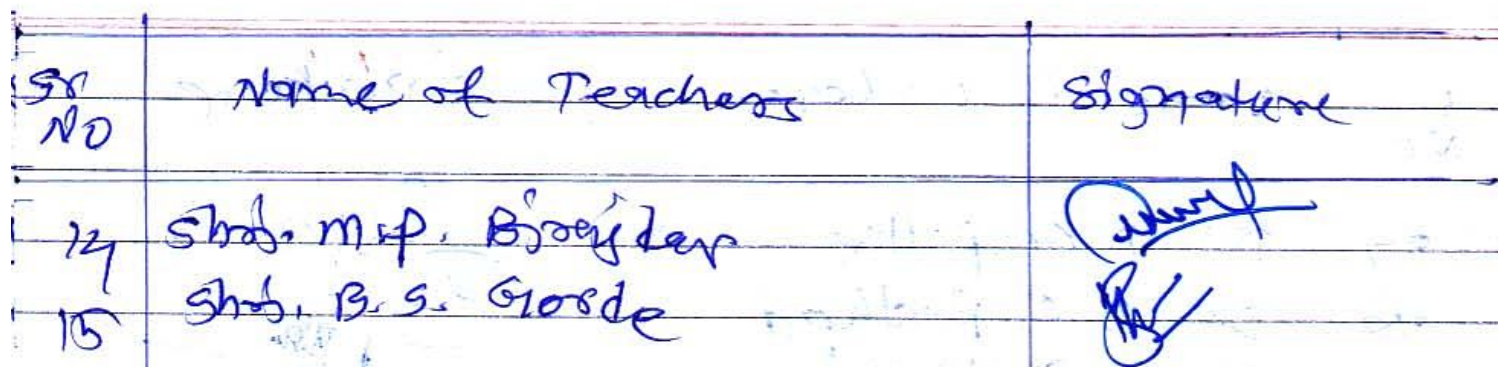 Sr No Name of Teachers Signature
14 Shri. M.P. Birajdar
15 Shri. B.S. Gorde